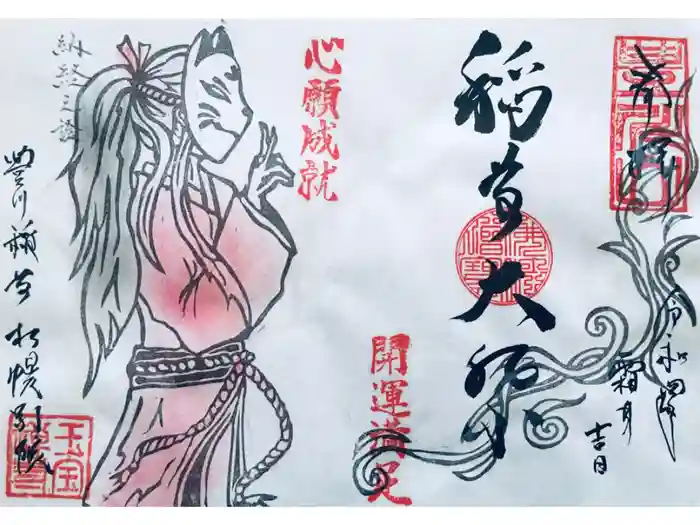 奉拝
令和四年
霜月
吉日
稲荷大
佛法僧寶
心願成就
開運満足
納経之證
豊川稲荷 札幌別院
玉宝